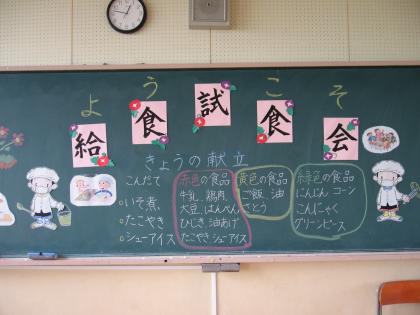 ようこそ
給食試食会
きょうの献立
こんだて
○いそ煮、
○たこやき
○シューアイス
赤色の食品
牛乳、鶏肉、
大豆、はんぺん
ひじき、油あげ
たこやき、シューアイス
黄色の食品
ご飯、油
さとう
緑色の食品
にんじん コーン
こんにゃく
グリーンピース